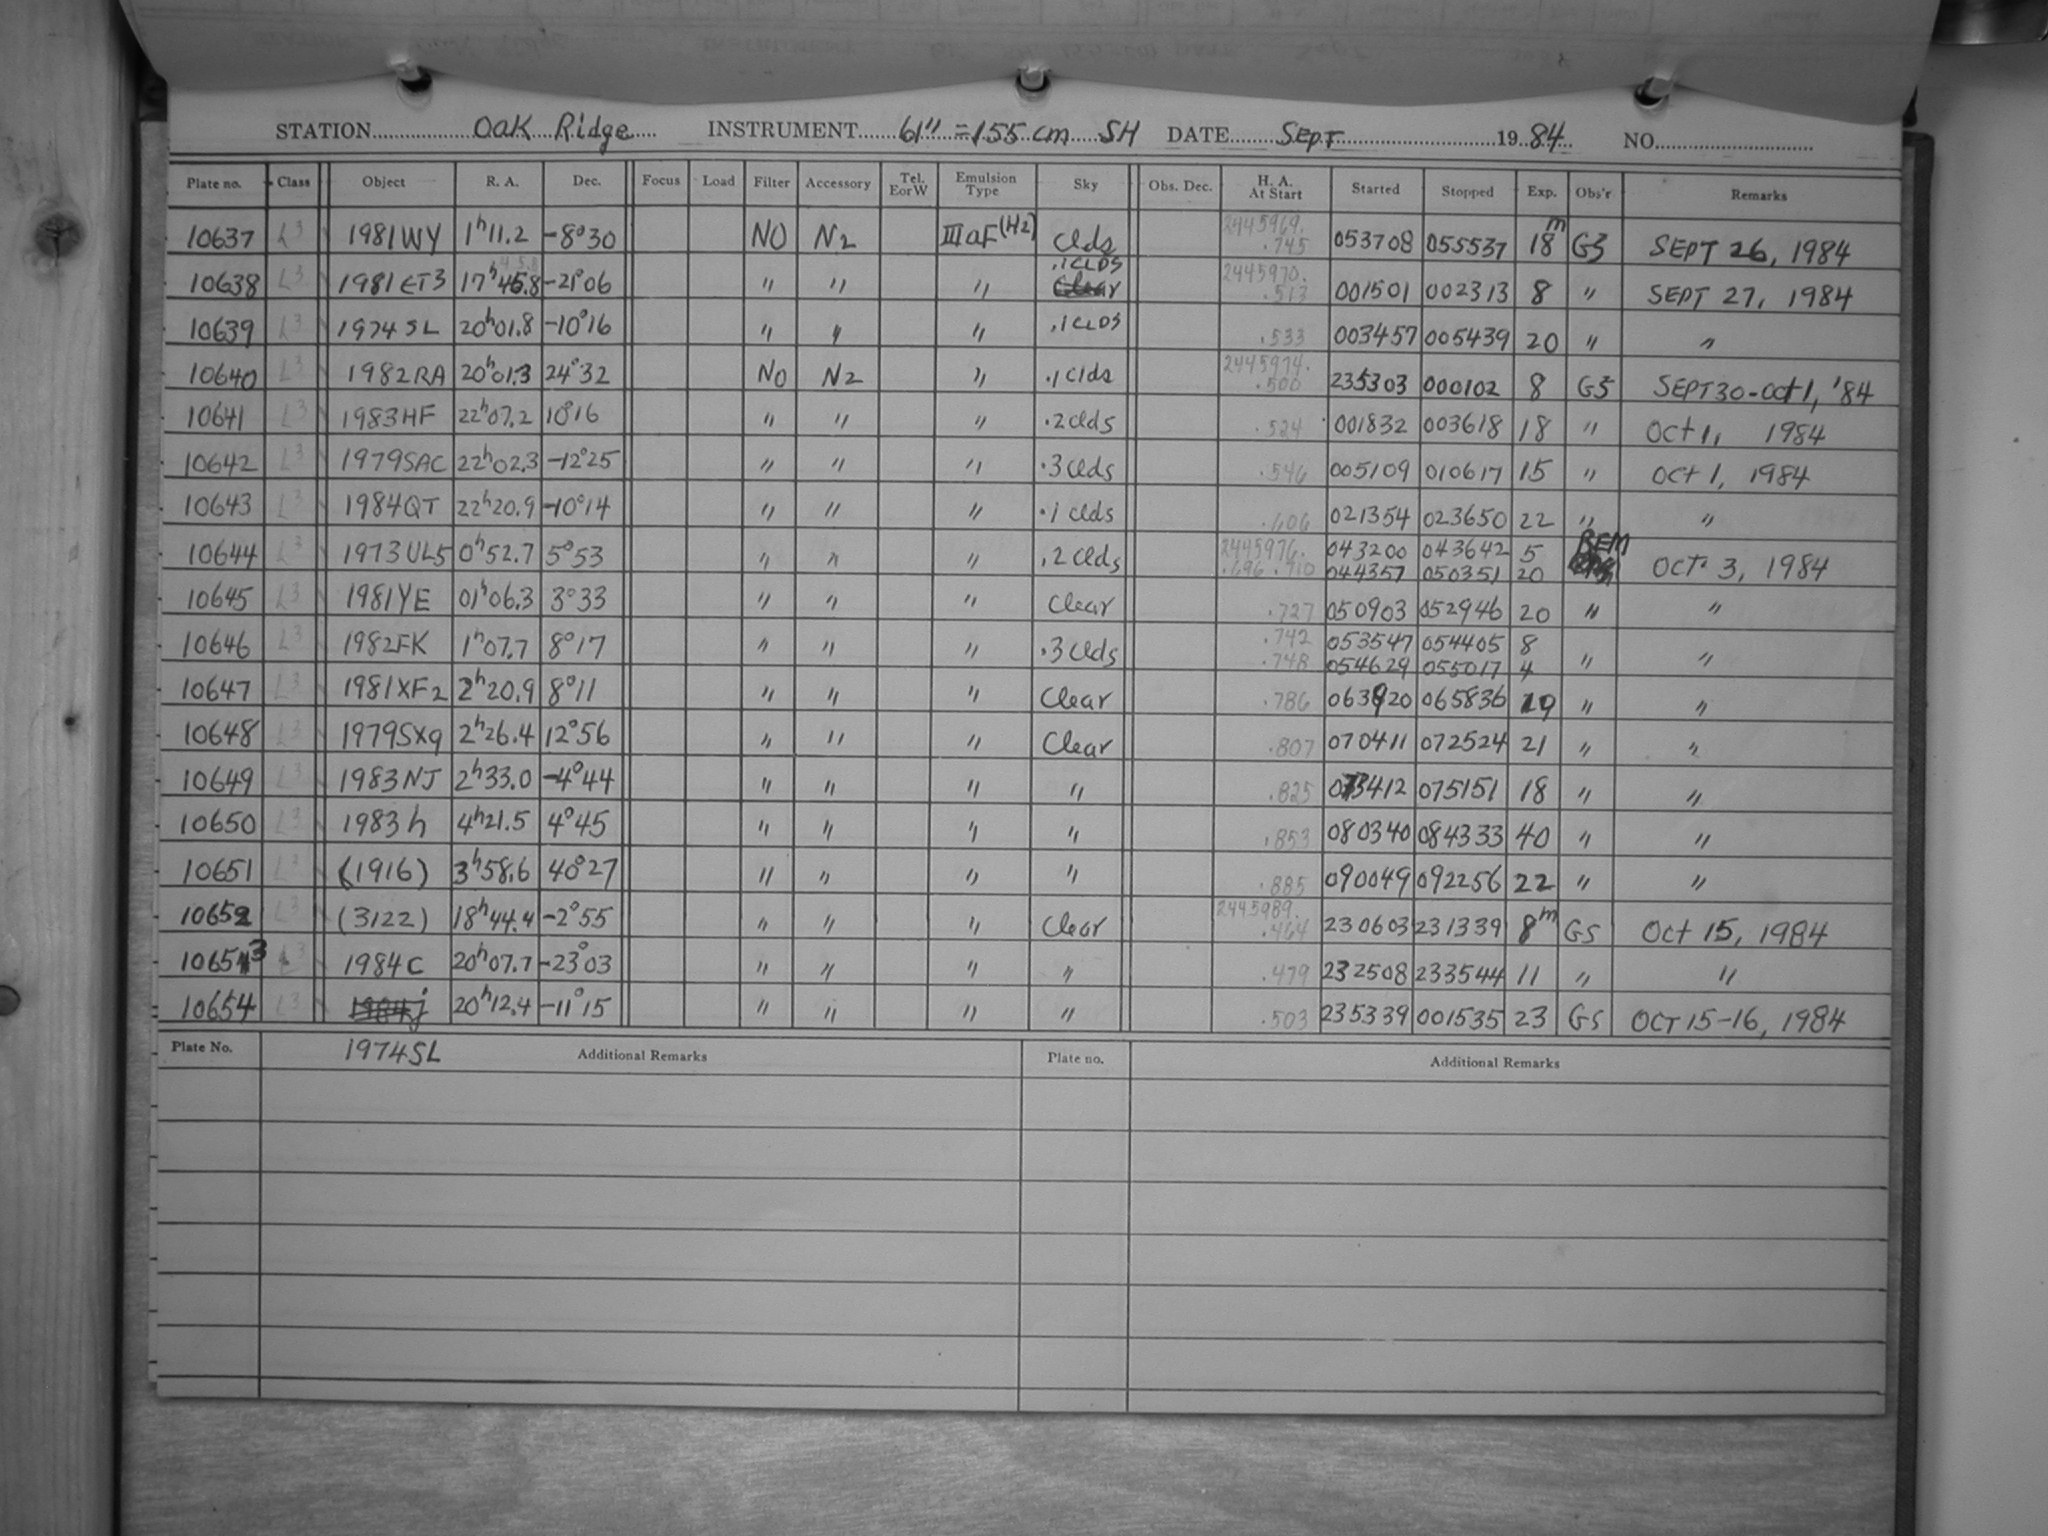 STATION Oak Ridge INSTRUMENT 61" = 155 cm SH DATE Sept 19 84 NO
Plate no. Class Object R. A. Dec. Focus Load Filter Accessory Tel. E or W Emulsion Type Sky Obs. Dec. H. A. At Start Started Stopped Exp. Obs'r Remarks
10637 L3 1981WY 1h11.2 -8°30 NO N2 IIIaF(H2) Clds 2445969. .745 053708 055537 18m GS SEPT 26, 1984
10638 L3 1981ET3 17h45.8 -21°06 " " " .1CLDS 2445970. .513 001501 002313 8 " SEPT 27, 1984
10639 L3 1974SL 20h01.8 -10°16 " " " .1CLDS .533 003457 005439 20 " "
10640 L3 1982RA 20h01.3 24°32 NO N2 " .1Clds 2445974. .500 235303 000102 8 GS SEPT30-Oct1, '84
10641 L3 1983HF 22h07.2 10°16 " " " .2Clds .524 001832 003618 18 " Oct 1, 1984
10642 L3 1979SAC 22h02.3 -12°25 " " " .3Clds .546 005109 010617 15 " Oct 1, 1984
10643 L3 1984QT 22h20.9 -10°14 " " " .1 Clds .606 021354 023650 22 " "
10644 L3 1973UL5 0h52.7 5°53 " " " .2Clds 2445976. 043200 043642 5 REM Oct 3, 1984
.696 .710 044357 050351 20
10645 L3 1981YE 01h06.3 3°33 " " " Clear .727 050903 052946 20 " "
10646 L3 1982FK 1h07.7 8°17 " " " .3Clds .742 053547 054405 8 " "
.748 054629 055017 4
10647 L3 1981XF2 2h20.9 8°11 " " " Clear .786 063920 065836 19 " "
10648 L3 1979SX9 2h26.4 12°56 " " " Clear .807 070411 072524 21 " "
10649 L3 1983NJ 2h33.0 -4°44 " " " " .825 073412 075151 18 " "
10650 L3 1983h 4h21.5 4°45 " " " " .853 080340 084333 40 " "
10651 L3 (1916) 3h58.6 40°27 " " " " .885 090049 092256 22 " "
10652 L3 (3122) 18h44.4 -2°55 " " " Clear 2445989. .464 230603 231339 8m GS Oct 15, 1984
10653 L3 1984C 20h07.7 -23°03 " " " " .479 232508 233544 11 " "
10654 L3 1984j 20h12.4 -11°15 " " " " .503 235339 001535 23 GS OCT 15-16, 1984
Plate No. 1974SL Additional Remarks Plate no. Additional Remarks